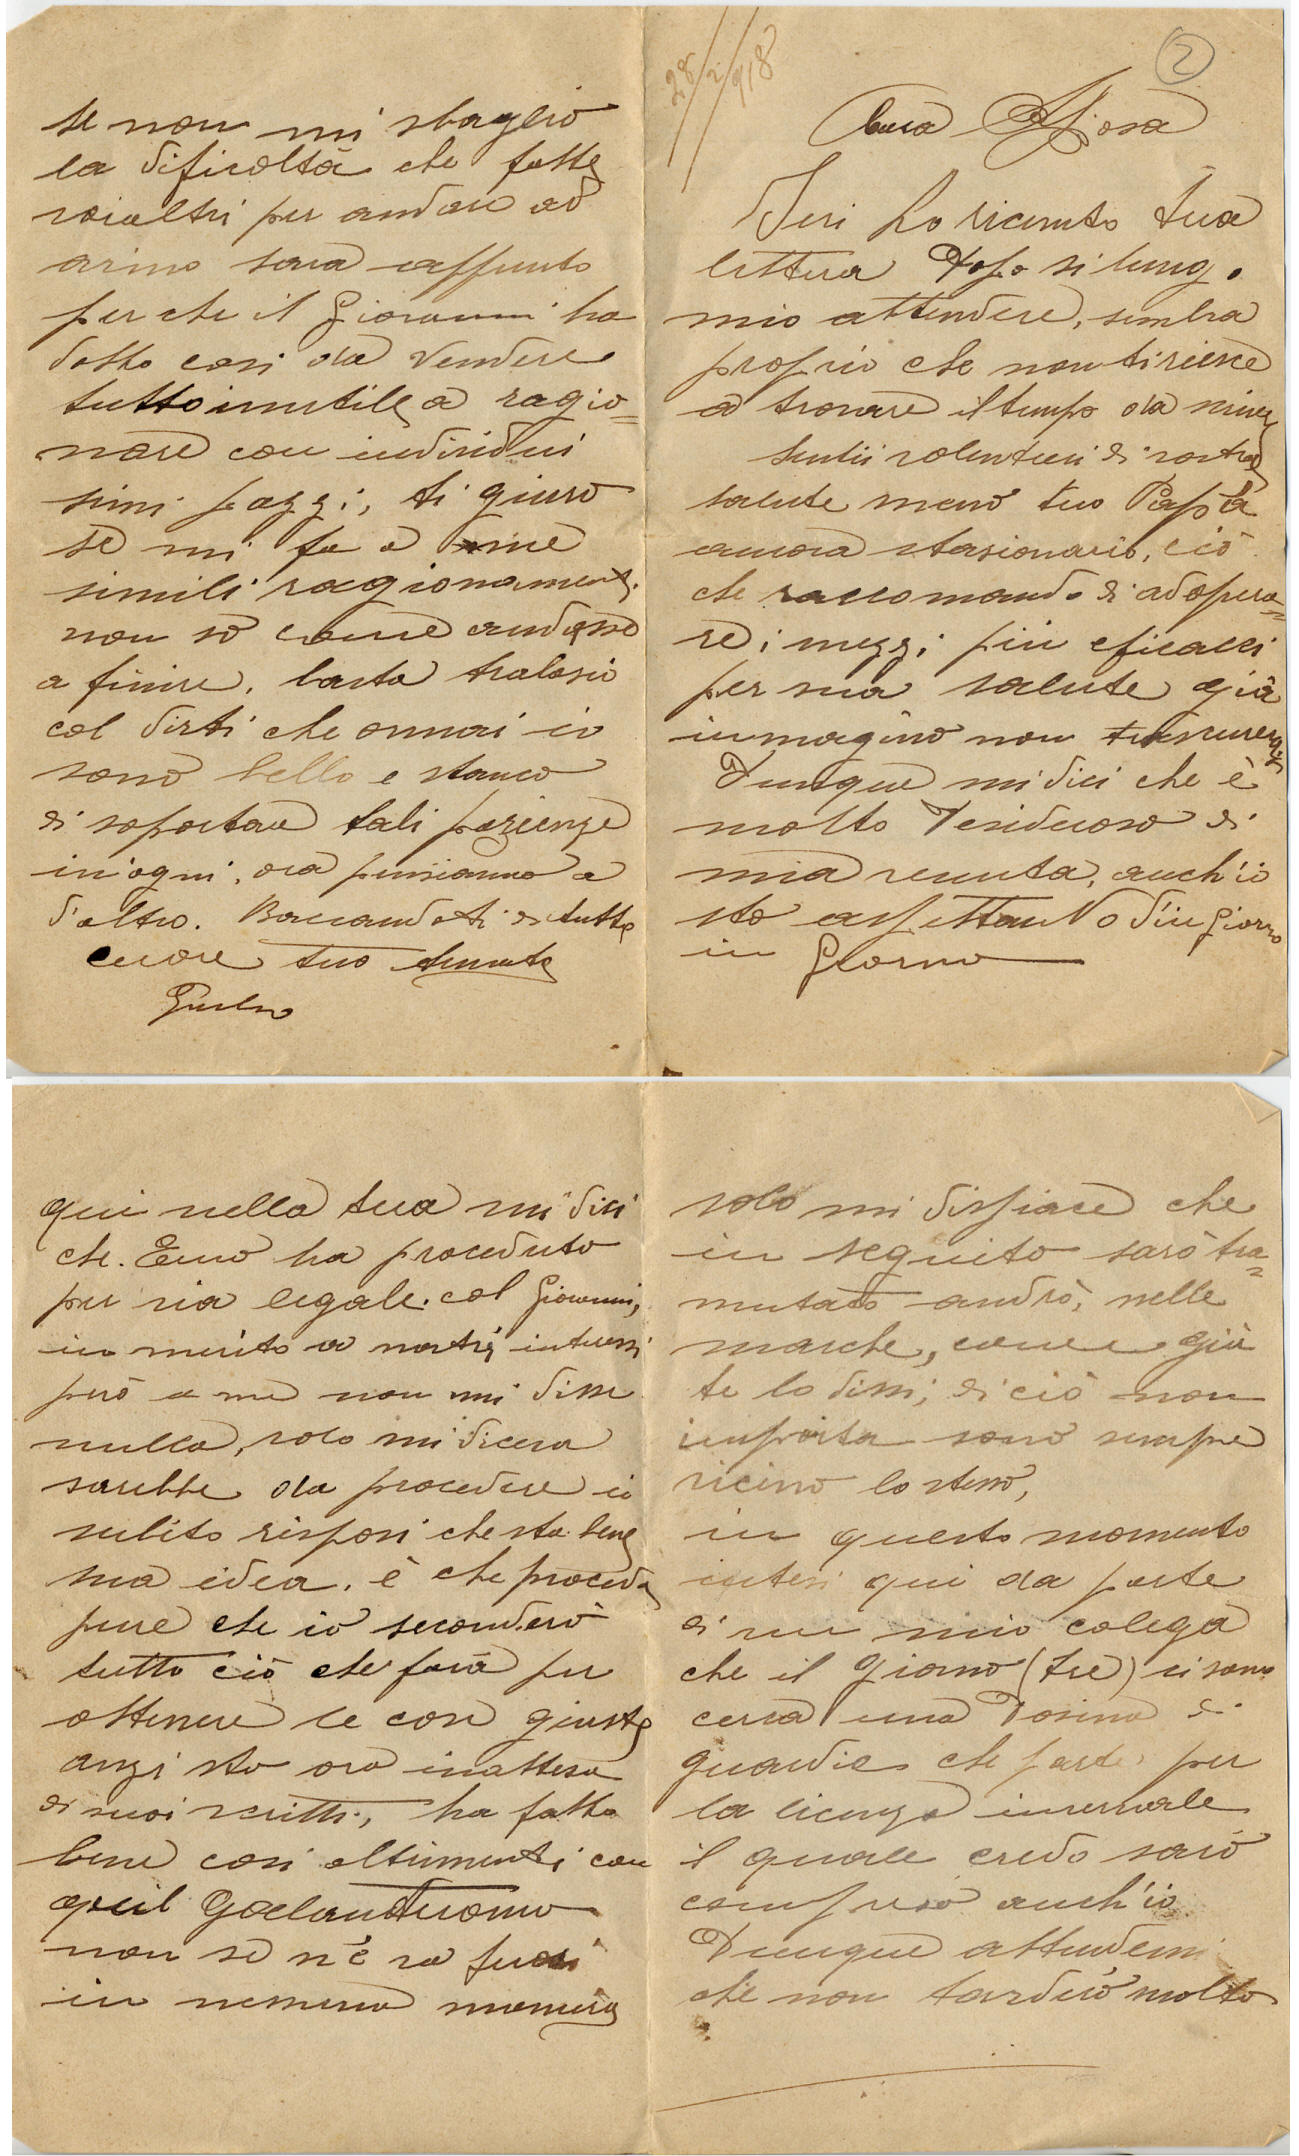 28/2/918
2
Cara Sposa
Ieri ho ricevuto tua
lettera dopo si lungo
mio attendere, sembra
proprio che non ti riesce
a trovare il tempo da
sentii volentieri di vostra
salute meno tuo Papà
ancora stasionario, ciò
che raccomando di adopera=
re i mezzi più eficacci
per sua salute già
immagino non
Dunque mi dici che è
molto desideroso di
mia venuta, anch'io
sto aspettando di giorno
in Giorno
qui nella tua mi dici
che. Enno ha proceduto
per via legale. col Giovanni,
in merito a nostri interessi
però a me non mi disse
nulla, solo mi diceva
sarebbe da procedere io
subito risposi che sta bene
sua idea. è che proceda
pure che io seconderò
tutto ciò che farà per
ottenere le cose giuste
anzi sto ora in attesa
di suoi scritti, ha fatto
bene cosi altrimenti con
quel Galantuomo
non se n'è va fuori
in nessuna maniera
solo mi dispiace che
in seguito sarò tra=
mutato andrò, nelle
marche, come già
te lo dissi, di ciò non
importa sono sempre
vicino lo stesso,
in questo momento
intesi qui da parte
di un mio colega
che il giorno (tre) ci sono
cerca una dosina di
guardie che parte per
la licenza invernale
il quale credo sarò
compreso anch'io
Dunque attendemi
che non tarderò molto
se non mi sbaglio
la dificoltà che fatte
voialtri per andare ad
arino sara appunto
perche il Giovanni ha
dotto cosi da vendere
tutto inutile a ragio=
nare con individui
simi pazzi, ti giuro
se mi fa a me
simili ragionamenti
non sò come andasse
a finire, basta tralasio
col dirti che onmai io
sono bello e stanco
di soportare tali pazienze
in ogni. ora pensiamo a
d'altro. Bacciandoti di tutto
cuore tuo
Giulio